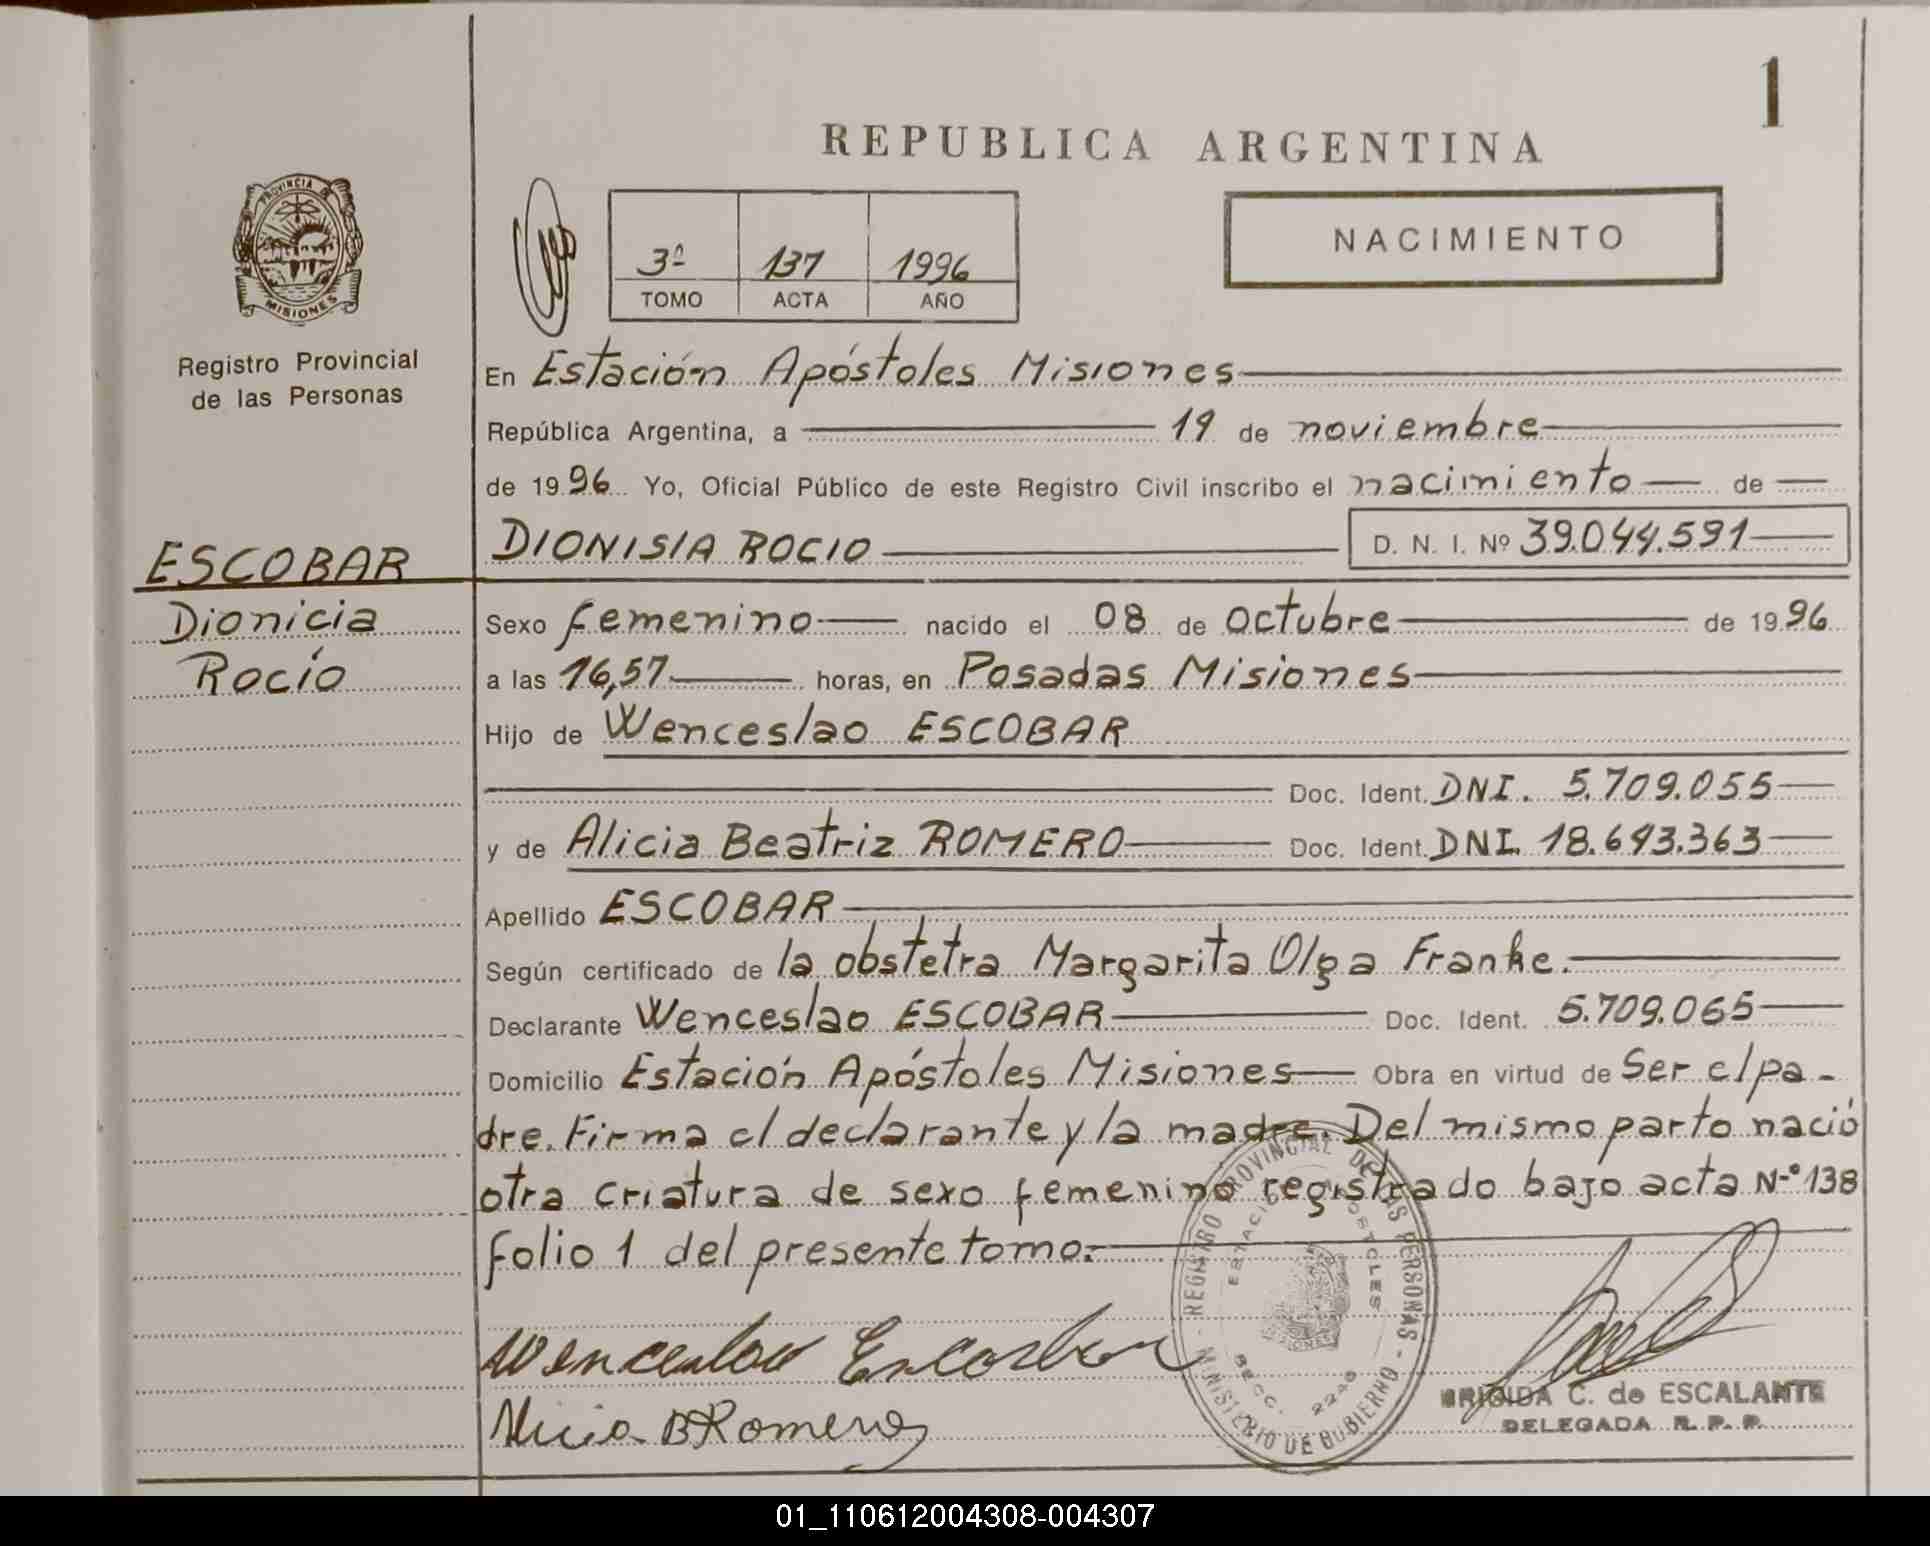 1
REPUBLICA ARGENTINA
PROVINCIA D
MISIONES
Registro Provincial
de las Personas
3º 137 1996
TOMO ACTA AÑO
NACIMIENTO
En Estación Apóstoles Misiones
República Argentina, a 19 de noviembre
de 1996 Yo, Oficial Público de este Registro Civil inscribo el nacimiento de
DIONISIA ROCIO D. N. I. Nº 39.044.591
ESCOBAR
Dionicia
Rocío
Sexo femenino nacido el 08 de octubre de 1996
a las 16,57 horas, en Posadas Misiones
Hijo de Wenceslao ESCOBAR
Doc. Ident. DNI. 5.709.055
y de Alicia Beatriz ROMERO Doc. Ident. DNI. 18.643.363
Apellido ESCOBAR
Según certificado de la obstetra Margarita Olga Franke.
Declarante Wenceslao ESCOBAR Doc. Ident. 5.709.065
Domicilio Estación Apóstoles Misiones Obra en virtud de Ser el pa-
dre. Firma el declarante y la madre. Del mismo parto nació
otra criatura de sexo femenino registrado bajo acta N-º 138
folio 1 del presente tomo.
Wenceslao Escobar
Alicia B Romero
REGISTRO PROVINCIAL DE LAS PERSONAS - MINISTERIO DE GOBIERNO -
ESTACION APOSTOLES
SECC. 2246
BRIGIDA C. de ESCALANTE
DELEGADA R. P. P.
01_110612004308-004307